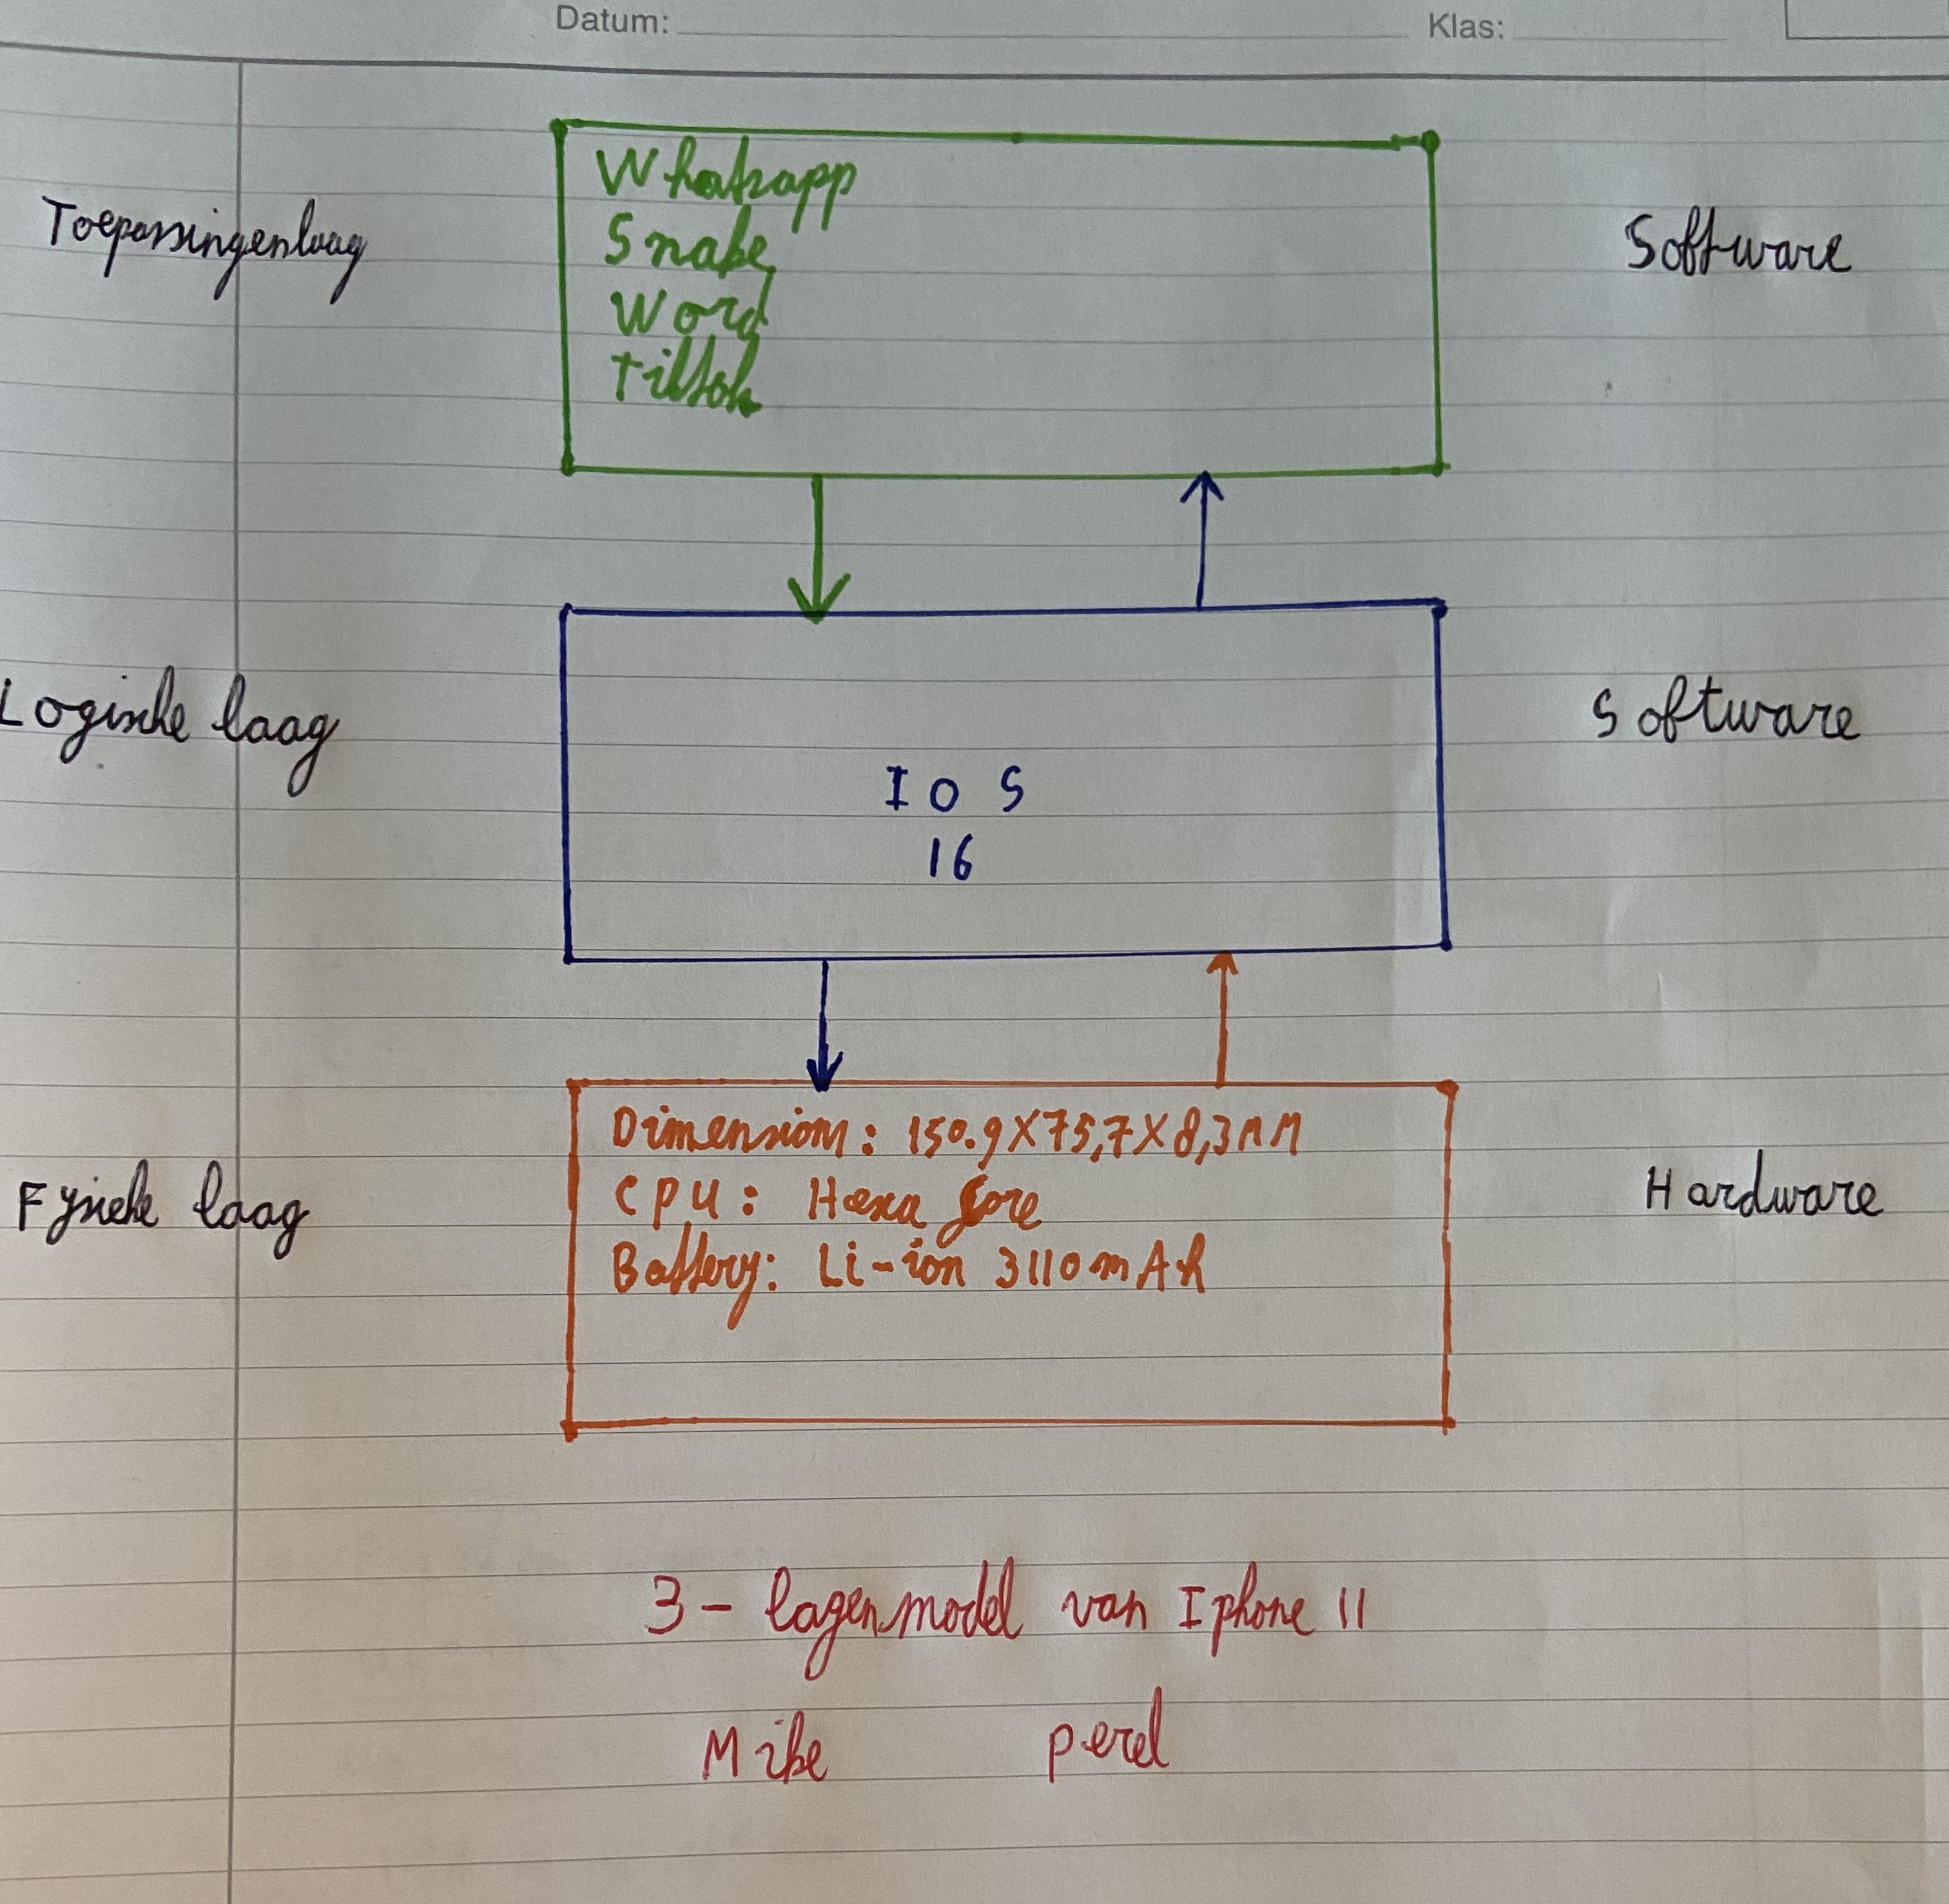 Datum:
Klas:
Toepassingenlaag
Whatsapp
Snake
Word
Tiktok
Software
Logische laag
IOS
16
Software
Fysieke laag
Dimensions: 150.9X75,7X8,3MM
CPU: Hexa Core
Battery: Li-ion 3110mAh
Hardware
3-lagenmodel van Iphone 11
Mike perel